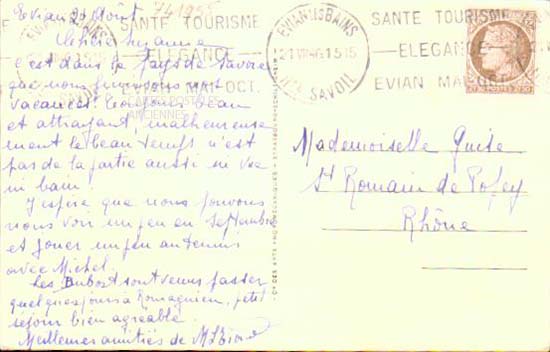 Evian 20 Août
741955
Chère Suzanne
c'est dans le pays de Savoie
que nous finissons nos
vacances toujours beau
et attrayant, malheureuse
ment le beau temps n'est
pas de la partie aussi ni vue
ni bain!
J'espère que nous pouvons
nous voir un peu en septembre
et jouer un peu au tennis
avec Michel.
Les Dubost sont venus passer
quelques jours à Romagnieu, petit
séjour bien agréable.
Meilleures amitiés de
SANTE TOURISME
ELEGANCE
MAI-OCT.
CARTES POSTALES
ANCIENNES
EVIAN LES BAINS
21 VIII 46 15 15
HTE SAVOIE
SANTE TOURISME
—ELEGANCE—
EVIAN MAI-OCT.
Mademoiselle Guise
St Romain de Popey
Rhône